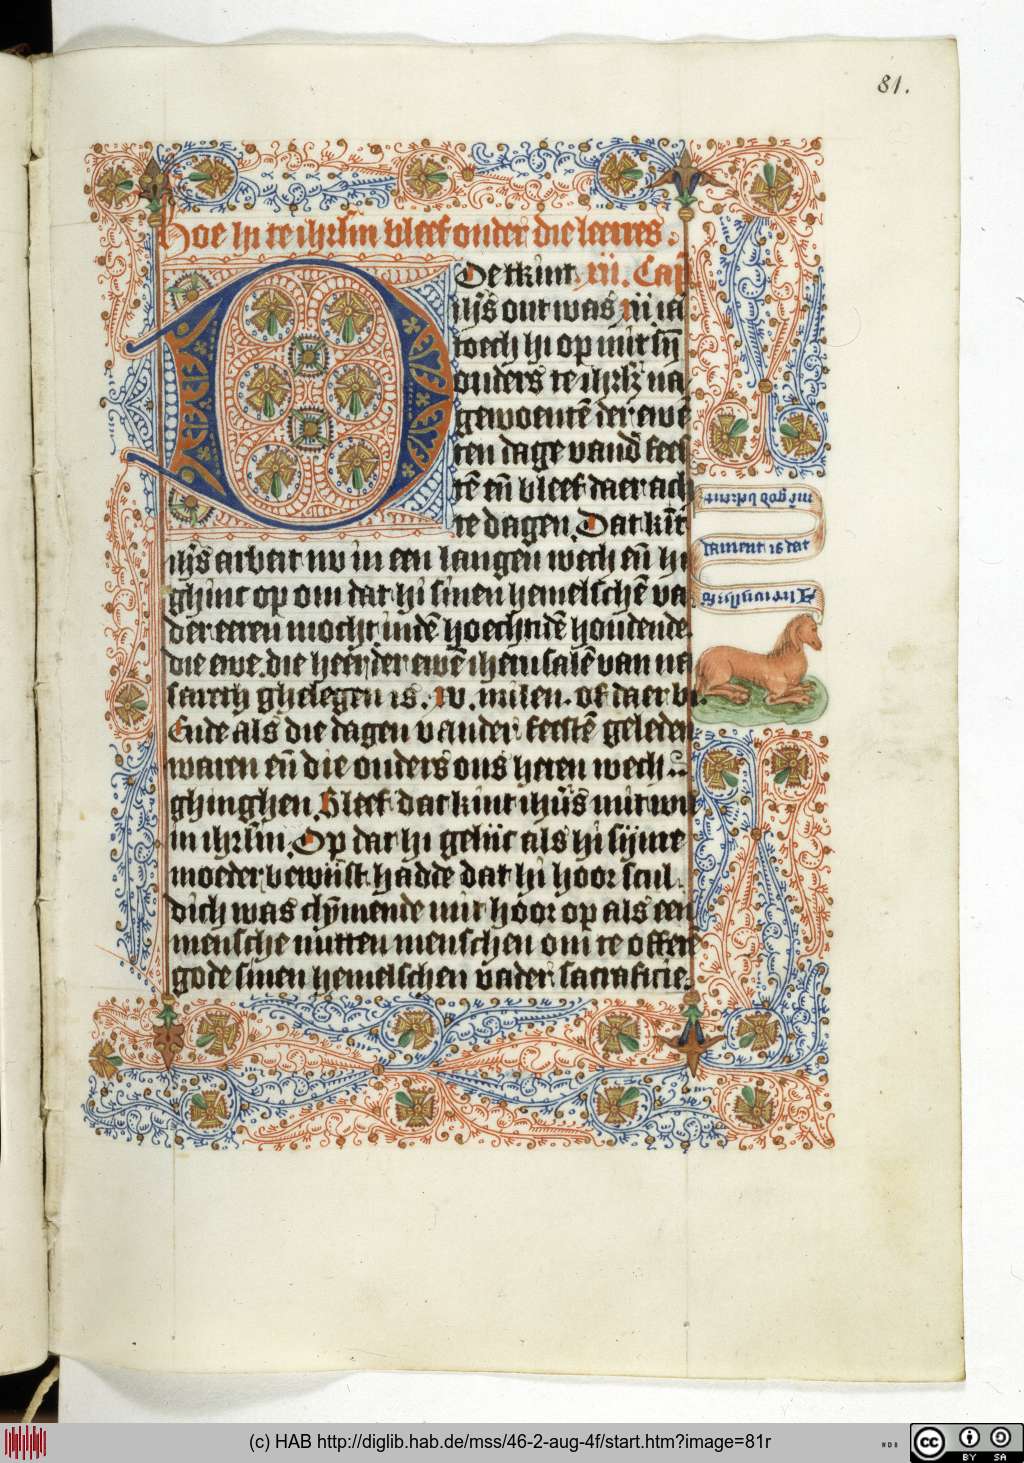 81.
Hoe hi te ihrl̄m bleef onder die leerres.
Det kint xii. Cap̄
ih̄s out was xii ia
toech hi op mit sȳn
ouders te ihrl̄z na
gewoentē der ewē
ten dage vand̄ fees
tē en̄ bleef daer ach
te dagen. Dat kīt
ih̄s arbeit nv in een langen wech en̄ hi
ghinc op om dat hi sinen hemelschē va
der eeren mocht indē hoechtidē houdende
die ewe. die heer der ewē iherusalē van na
sareth ghelegen is. xv. milen. of daer bi.
Ende als die dagen vander feestē geleden
waren en̄ die ouders ons heren wech
ghinghen. Bleef dat kint ihūs mit wil
in ihrl̄m. Op dat hi gelijc als hi sijnre
moeder bewijst hadde dat hi hoor scul
dich was clȳmende mit hoor op als een
mensche mitten menschen om te offerē
gode sinen hemelschen vader sacrificie.
mē god bekent
tament is dat
(c) HAB http://diglib.hab.de/mss/46-2-aug-4f/start.htm?image=81r
WDB
cc
BY SA